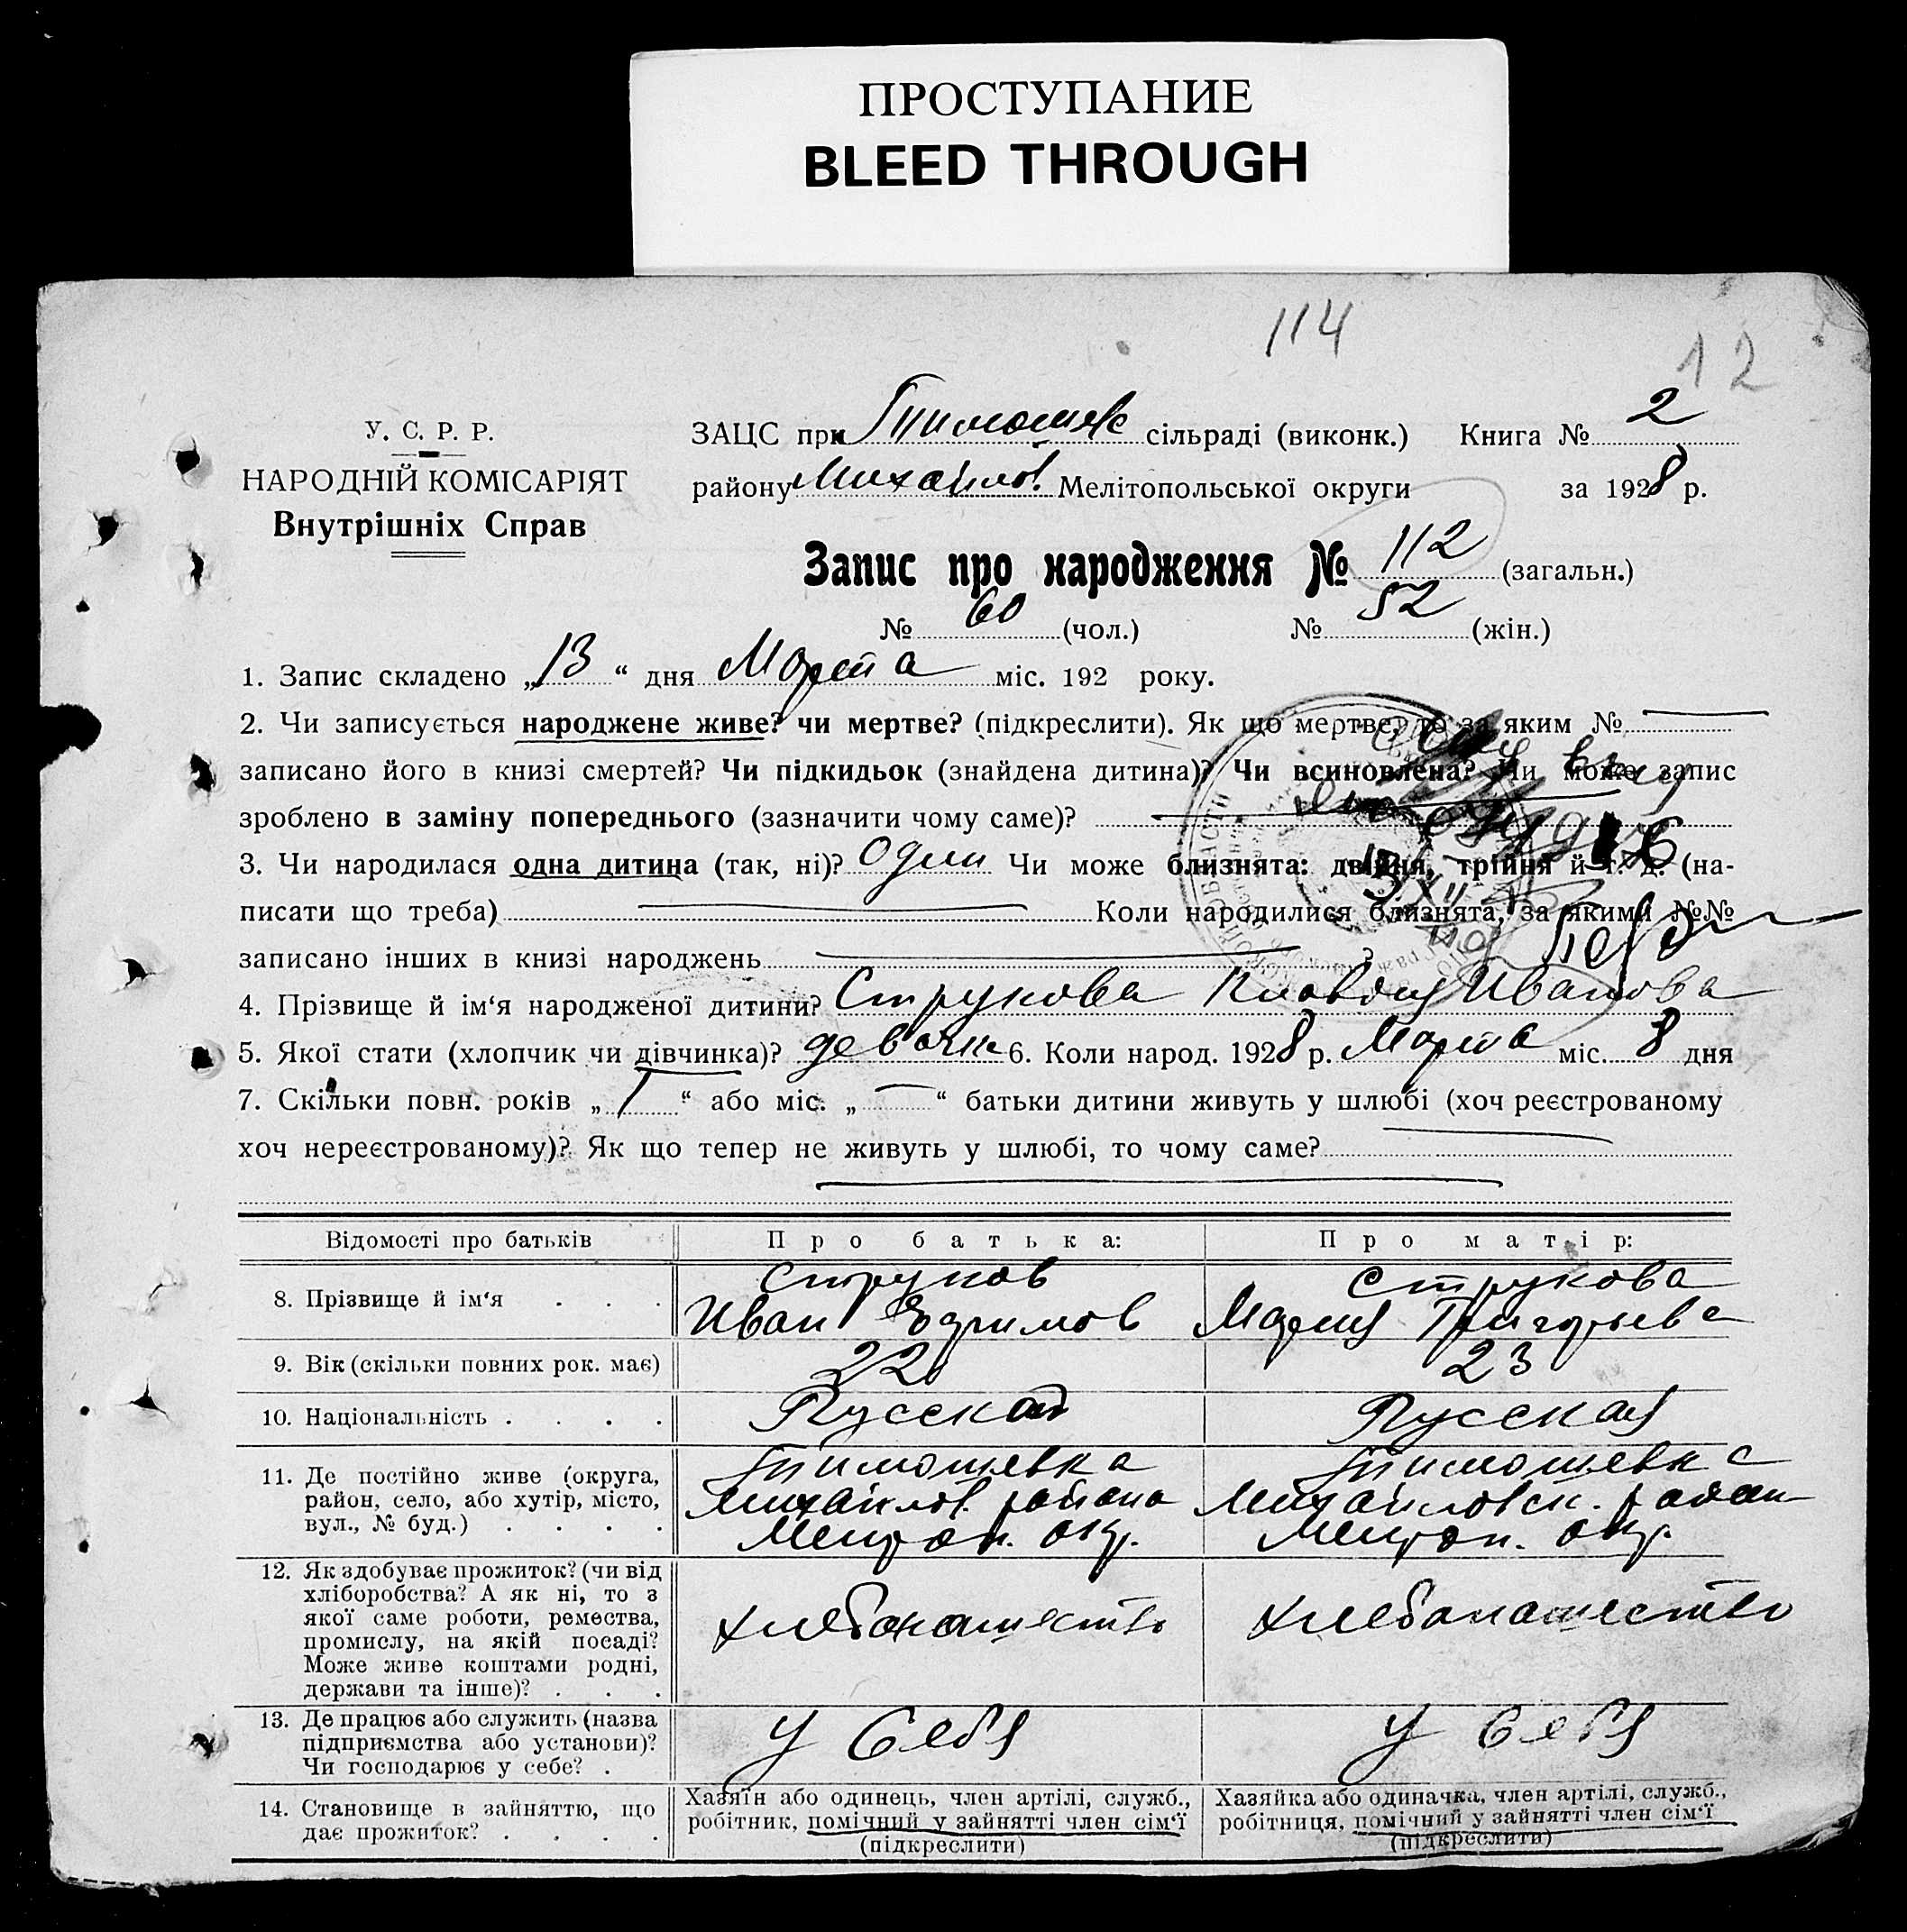 ПРОСТУПАНИЕ
BLEED THROUGH
114
12
У. С. Р. Р.
НАРОДНІЙ КОМІСАРІЯТ
Внутрішніх Справ
ЗАЦС при Тимошевс сільраді (виконк.) Книга № 2
району Михайлов. Мелітопольської округи за 1928 р.
Запис про народження № 112 (загальн.)
№ 60 (чол.) № 52 (жін.)
1. Запис складено „13“ дня Марта міс. 192 року.
2. Чи записується народжене живе? чи мертве? (підкреслити). Як що мертве, то за яким №
записано його в книзі смертей? Чи підкидьок (знайдена дитина)? Чи всиновлена? Чи може запис
зроблено в заміну попереднього (зазначити чому саме)?
3. Чи народилася одна дитина (так, ні)? Один Чи може близнята: двійня, трійня й т. д. (на-
писати що треба) Коли народилися близнята, за якими №№
записано інших в книзі народжень
4. Прізвище й ім‘я народженої дитини? Струкова Клавдия Иванова
5. Якої стати (хлопчик чи дівчинка)? девочка 6. Коли народ. 1928 р. Марта міс. 8 дня
7. Скільки повн. років „1“ або міс. „—“ батьки дитини живуть у шлюбі (хоч реєстрованому
хоч нереєстрованому)? Як що тепер не живуть у шлюбі, то чому саме?
Відомості про батьків Про батька: Про матір:
8. Прізвище й ім‘я . . . Струков Иван Ефимов Струкова Мария Григорьева
9. Вік (скільки повних рок. має) 22 23
10. Національність . . . . Русской Русская
11. Де постійно живе (округа,
район, село, або хутір, місто,
вул., № буд.) . . . .
Тимошевка
Михайлов. района
Мелитоп. окр.
Тимошевка
Михайловск. район
Мелитоп. окр.
12. Як здобуває прожиток? (чи від
хліборобства? А як ні, то з
якої саме роботи, ремества,
промислу, на якій посаді?
Може живе коштами родні,
держави та інше)? . . .
хлебопашество
хлебопашество
13. Де працює або служить (назва
підприємства або установи)?
Чи господарює у себе? .
У себя
У себя
14. Становище в зайняттю, що
дає прожиток? . . . .
Хазяїн або одинець, член артілі, служб.,
робітник, помічний у зайнятті член сім‘ї
(підкреслити)
Хазяйка або одиначка, член артілі, служб.,
робітниця, помічний у зайнятті член сім‘ї
(підкреслити)